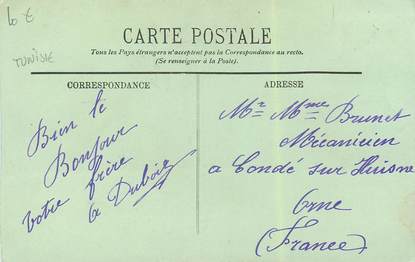 10 €
TUNISIE
CARTE POSTALE
Tous les Pays étrangers n'acceptent pas la Correspondance au recto.
(Se renseigner à la Poste).
CORRESPONDANCE
Bien le
Bonjour
votre frère
G Dubois
ADRESSE
Mr Mme Brunet
Mécanicien
a Condé sur Huisne
Orne
(France)